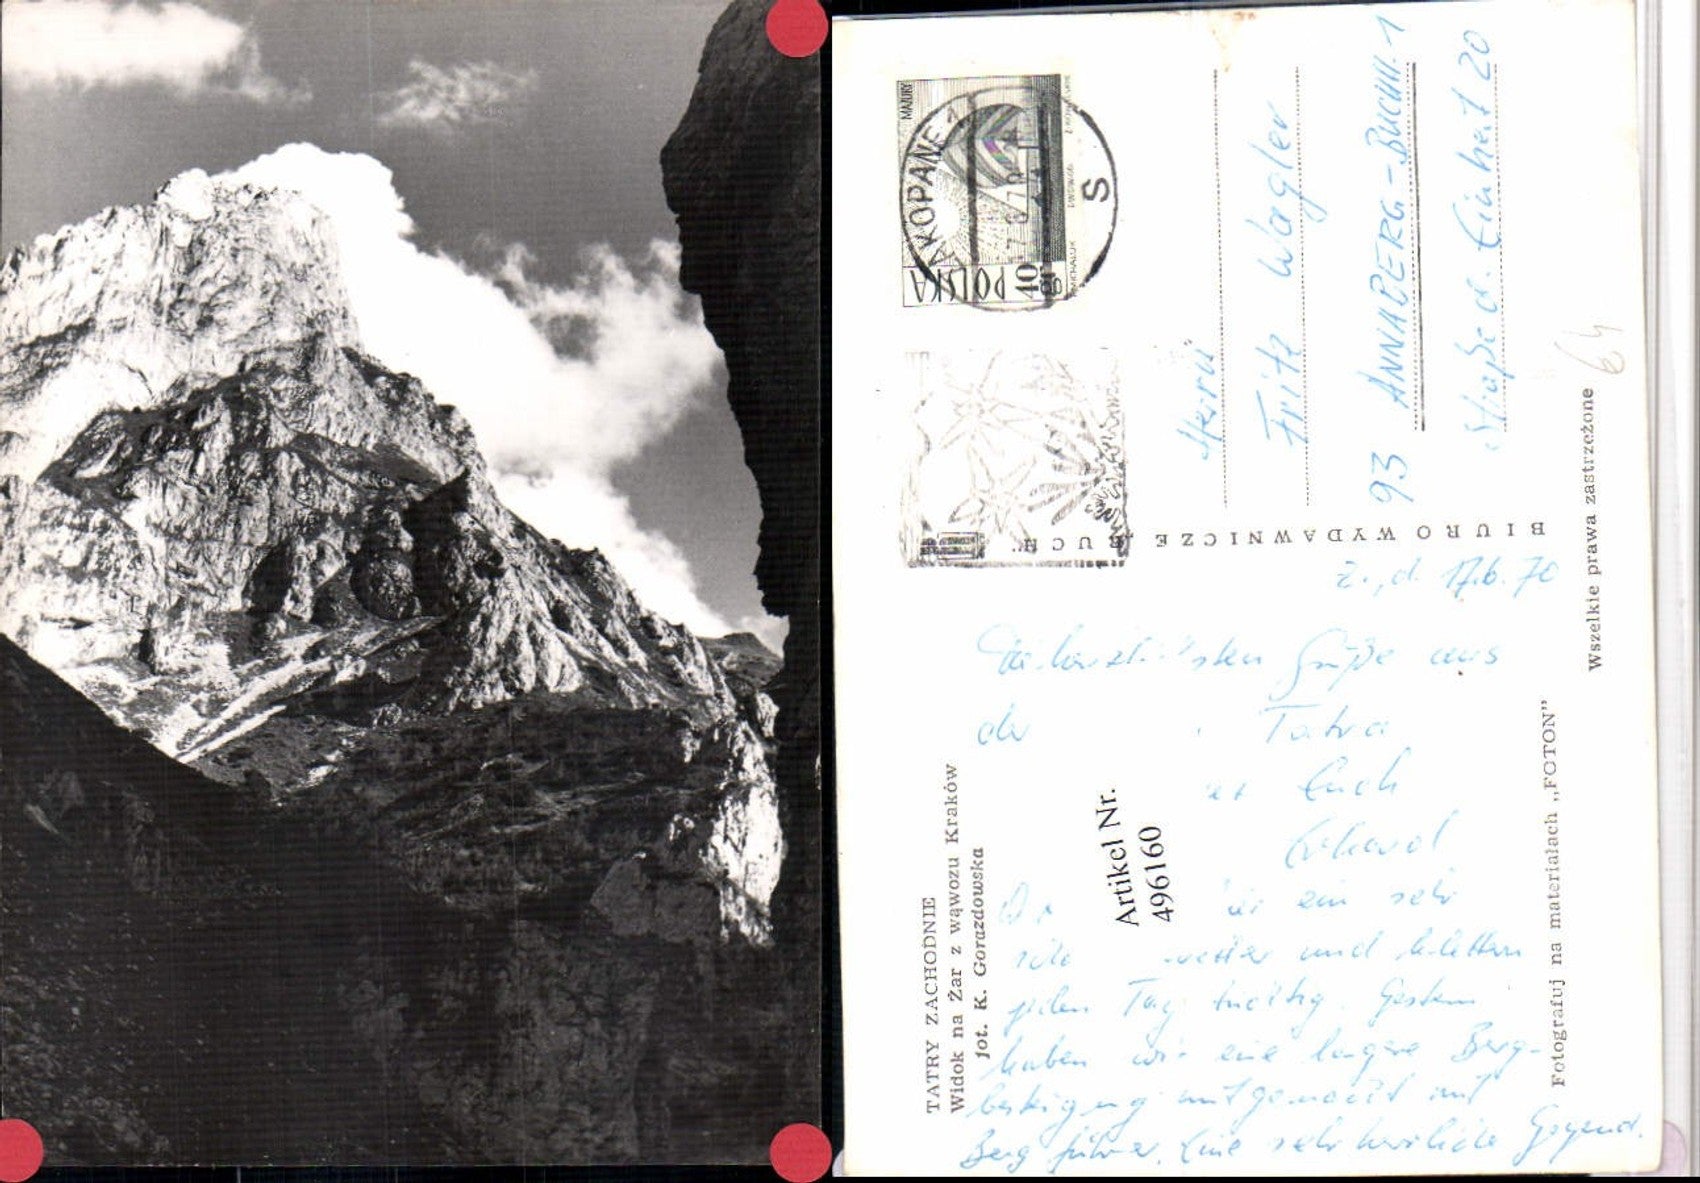 MAZURY
POLSKA 40 GR
ZAKOPANE 1
S
BIURO WYDAWNICZE „RUCH”
Herrn
Fritz Wagler
93 ANNABERG-BUCHH. 1
Straße d. Einheit 20
64
Wszelkie prawa zastrzeżone
Fotografuj na materiałach „FOTON”
TATRY ZACHODNIE
Widok na Żar z wąwozu Kraków
fot. K. Gorazdowska
Artikel Nr.
496160
Z., d. 17.6.70
Grüße aus
der Tatra
Euch
ein sehr
wetter und klettern
jeden Tag tüchtig. Gestern
haben wir eine längere Berg-
besteigung mitgemacht mit
Bergführer. Eine sehr herrliche Gegend.